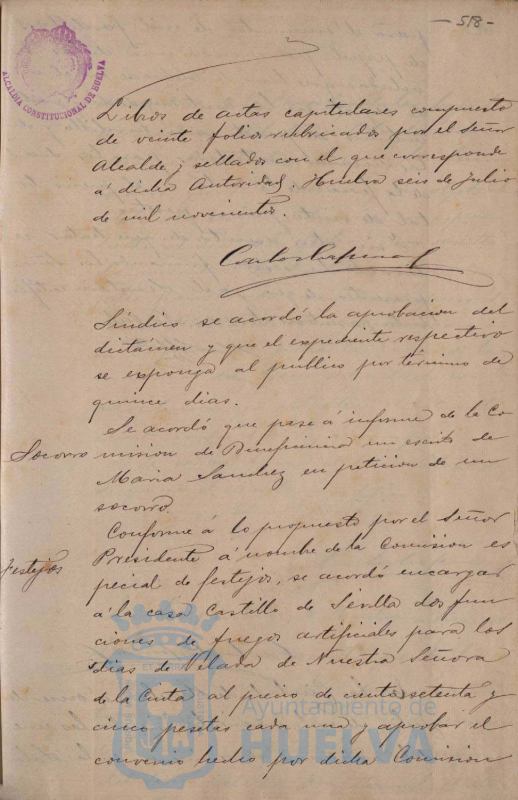 - 518 -
ALCALDIA CONSTITUCIONAL DE HUELVA
Libros de actas capitulares compuesto
de veinte folios rubricados por el Señor
Alcalde y sellados con el que corresponde
á dicha Autoridad. Huelva seis de Julio
de mil novecientos.
Síndico se acordó la aprobacion del
dictámen y que el expediente respectivo
se exponga al publico por término de
quince dias.
Se acordó que pase á informe de la Co-
Socorro mision de Beneficencia un escrito de
Maria Sanchez en peticion de un
socorro.
Conforme á lo propuesto por el Señor
Festejos Presidente á nombre de la Comision es
pecial de festejos, se acordó encargar
á la casa Castillo de Sevilla dos fun
ciones de fuegos artificiales para los
dias de Velada de Nuestra Señora
de la Cinta al precio de ciento setenta y
cinco pesetas cada una y aprobar el
convenio hecho por dicha Comision
Ayuntamiento de
HUELVA